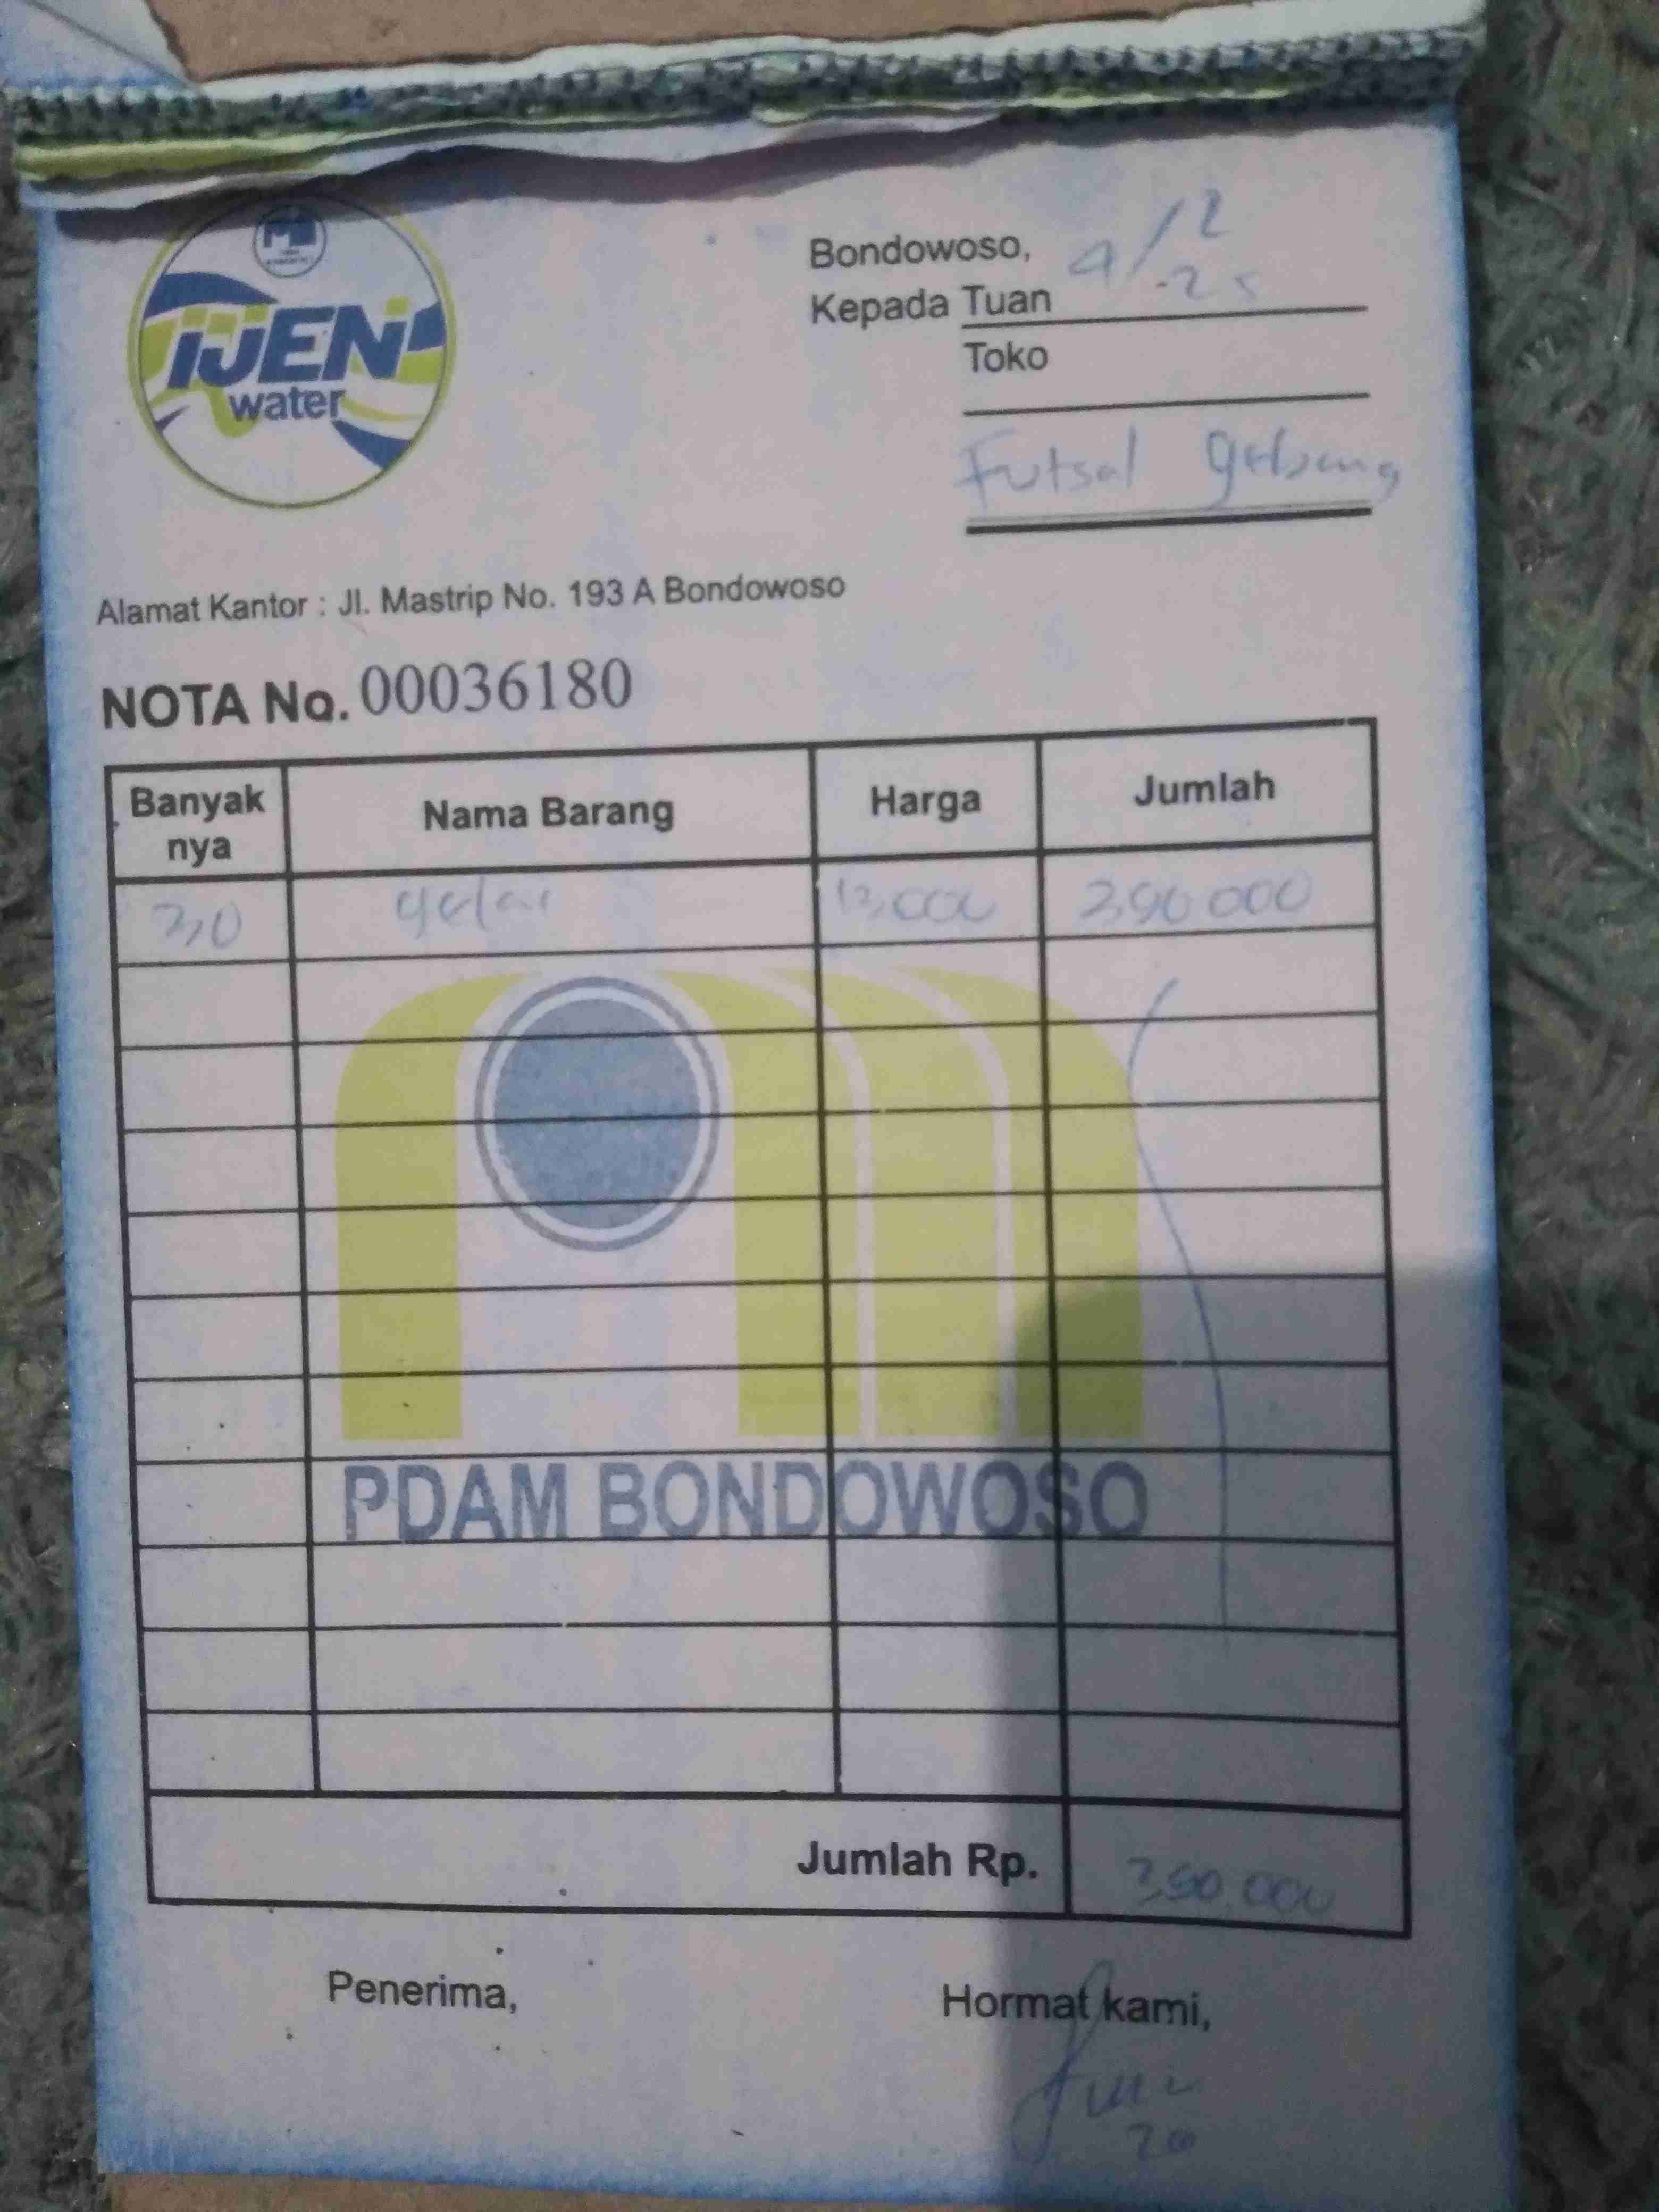 IJEN
water
Bondowoso, 4/2 -25
Kepada Tuan
Toko
Futsal gebang
Alamat Kantor : Jl. Mastrip No. 193 A Bondowoso
NOTA No. 00036180
Banyak nya Nama Barang Harga Jumlah
30 gelas 13,000 390 000
PDAM BONDOWOSO
Jumlah Rp. 390.000
Penerima, Hormat kami,